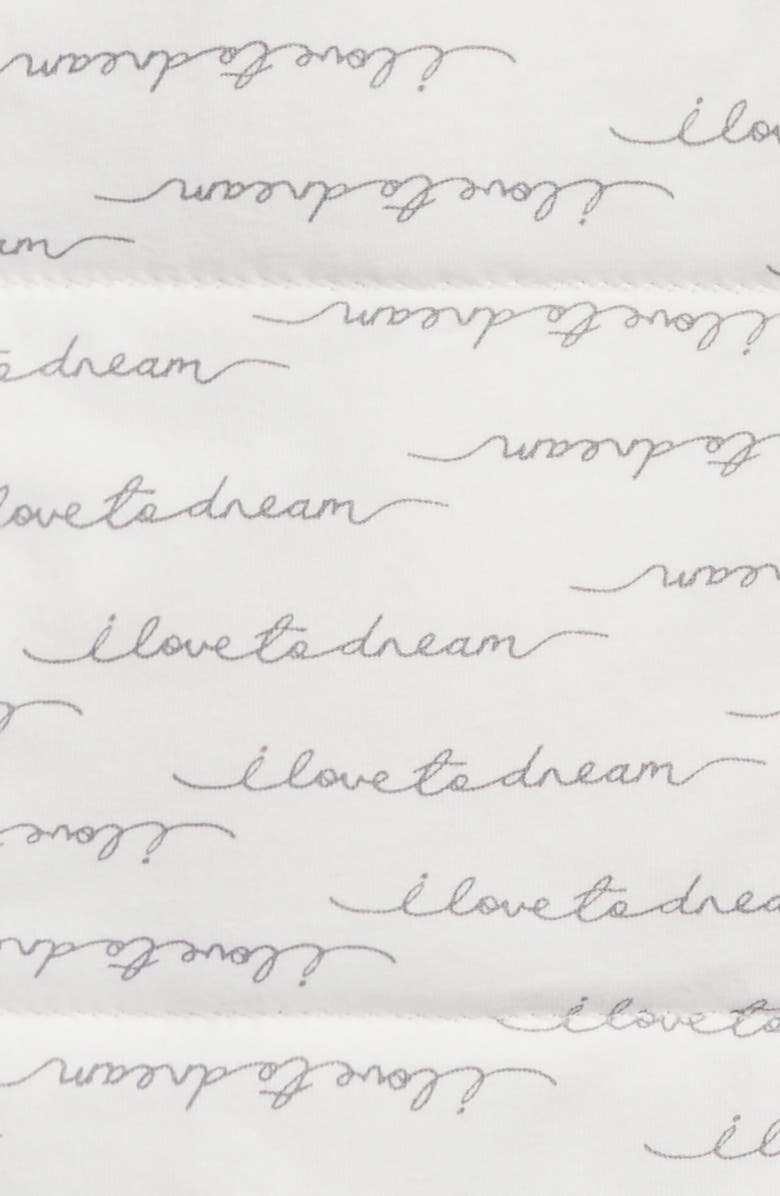 i love to dream
i lo
i love to dream
am
i love to dream
o dream
to dream
love to dream
ream
i love to dream
i love to dream
i love
i love to drea
i love to dr
i love to
i love to dream
i l